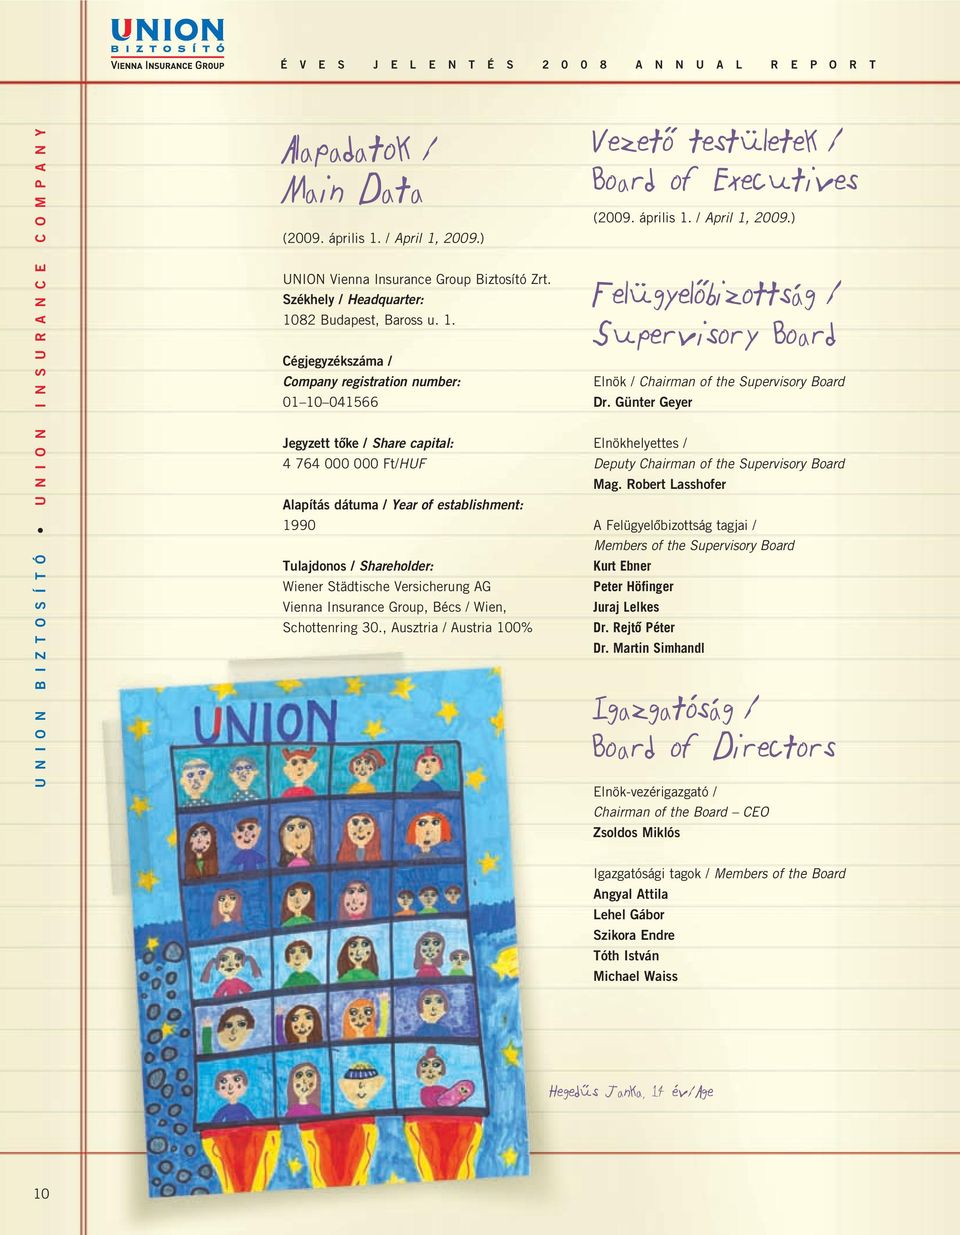 UNION
BIZTOSÍTÓ
VIENNA INSURANCE GROUP
ÉVES JELENTÉS 2008 ANNUAL REPORT
UNION BIZTOSÍTÓ • UNION INSURANCE COMPANY
Alapadatok /
Main Data
(2009. április 1. / April 1, 2009.)
UNION Vienna Insurance Group Biztosító Zrt.
Székhely / Headquarter:
1082 Budapest, Baross u. 1.
Cégjegyzékszáma /
Company registration number:
01–10–041566
Jegyzett tőke / Share capital:
4 764 000 000 Ft/HUF
Alapítás dátuma / Year of establishment:
1990
Tulajdonos / Shareholder:
Wiener Städtische Versicherung AG
Vienna Insurance Group, Bécs / Wien,
Schottenring 30., Ausztria / Austria 100%
UNION
Vezető testületek /
Board of Executives
(2009. április 1. / April 1, 2009.)
Felügyelőbizottság /
Supervisory Board
Elnök / Chairman of the Supervisory Board
Dr. Günter Geyer
Elnökhelyettes /
Deputy Chairman of the Supervisory Board
Mag. Robert Lasshofer
A Felügyelőbizottság tagjai /
Members of the Supervisory Board
Kurt Ebner
Peter Höfinger
Juraj Lelkes
Dr. Rejtő Péter
Dr. Martin Simhandl
Igazgatóság /
Board of Directors
Elnök-vezérigazgató /
Chairman of the Board – CEO
Zsoldos Miklós
Igazgatósági tagok / Members of the Board
Angyal Attila
Lehel Gábor
Szikora Endre
Tóth István
Michael Waiss
Hegedűs Janka, 14 év/Age
10